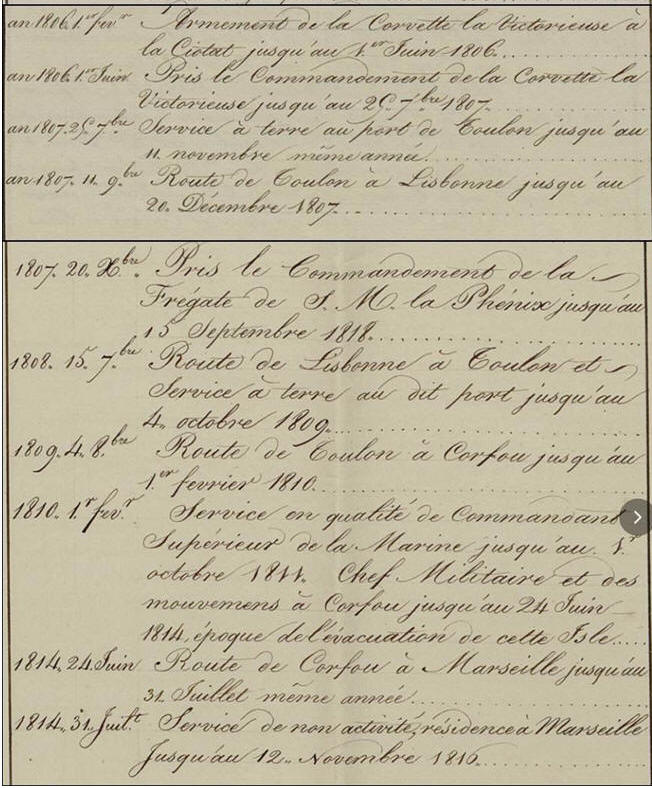 an 1806. 1.er fev.r Armement de la Corvette la Victorieuse à
la Ciotat jusqu'au 1.er Juin 1806
an 1806. 1.er Juin Pris le Commandement de la Corvette la
Victorieuse jusqu'au 25 7.bre 1807
an 1807. 25 7.bre Service à terre au port de Toulon jusqu'au
11. novembre même année
an 1807. 11. 9.bre Route de Toulon à Lisbonne jusqu'au
20. Décembre 1807
1807. 20. Xbre. Pris le Commandement de la
Frégate de S. M. la Phénix jusqu'au
15 Septembre 1818
1808. 15. 7.bre Route de Lisbonne à Toulon et
Service à terre au dit port jusqu'au
4. octobre 1809
1809. 4. 8.bre Route de Toulon à Corfou jusqu'au
1.er fevrier 1810
1810. 1.r fev.r Service en qualité de Commandant
Supérieur de la Marine jusqu'au 1.r
octobre 1811. Chef Militaire et des
mouvemens à Corfou jusqu'au 24 Juin
1814, époque de l'évacuation de cette Isle
1814. 24. Juin Route de Corfou à Marseille jusqu'au
31. Juillet même année
1814. 31. Juil.t Service de non activité, résidence à Marseille
Jusqu'au 12. Novembre 1816